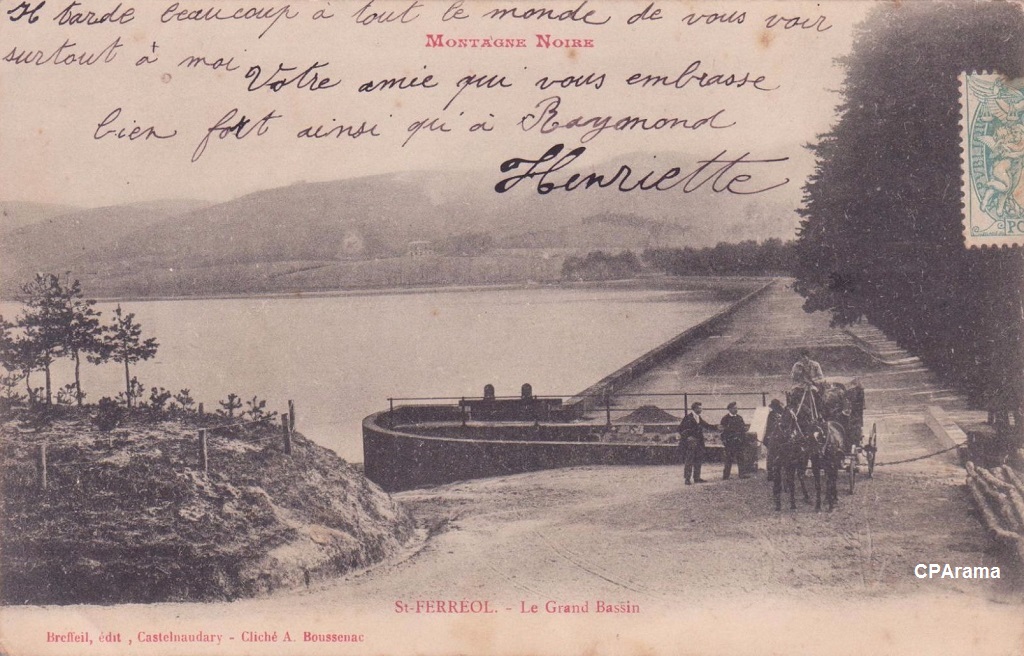 Il tarde beaucoup à tout le monde de vous voir
MONTAGNE NOIRE
surtout à moi
Votre amie qui vous embrasse
bien fort ainsi qu'à Raymond
Henriette
PUBLI
PO
CPArama
St-FERRÉOL. - Le Grand Bassin
Breffeil, édit , Castelnaudary - Cliché A. Boussenac